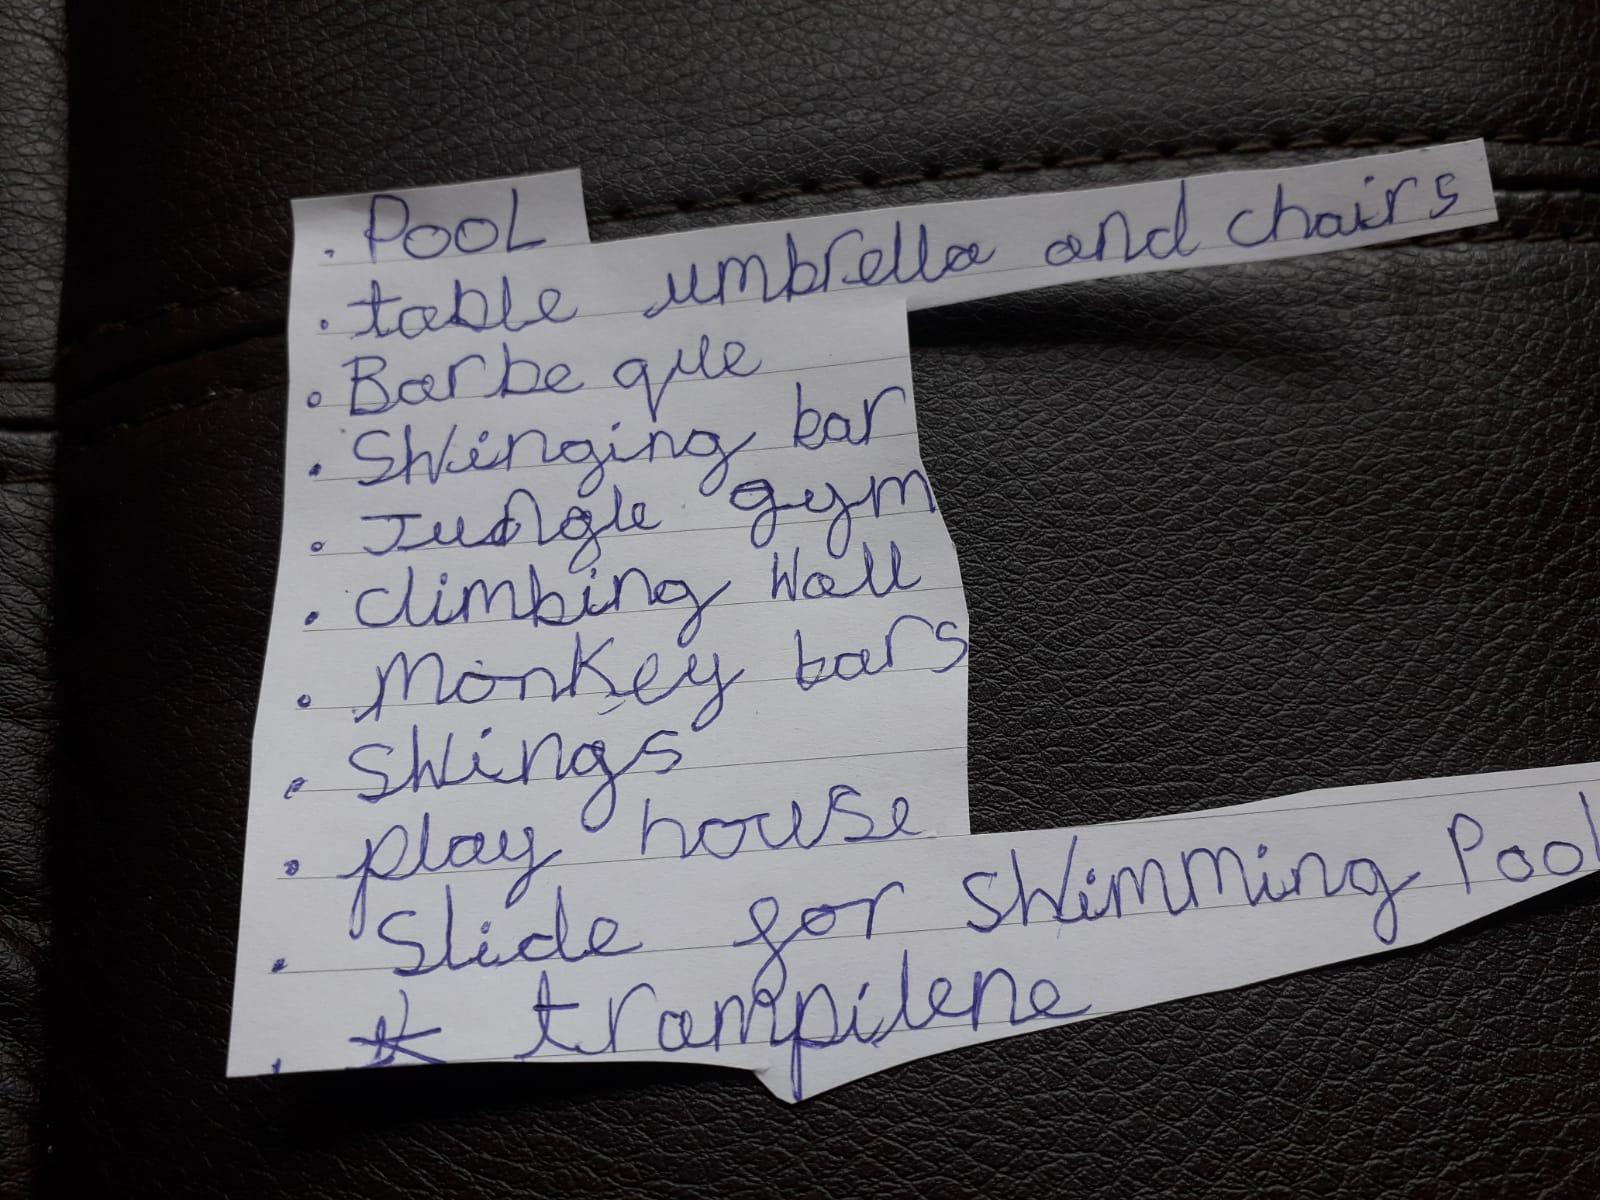 . Pool
. table umbrella and chairs
. Barbe que
. Swinging bar
. Jungle gym
. climbing wall
. Monkey bars
. swings
. play house
. Slide for swimming Pool
. * trampilene